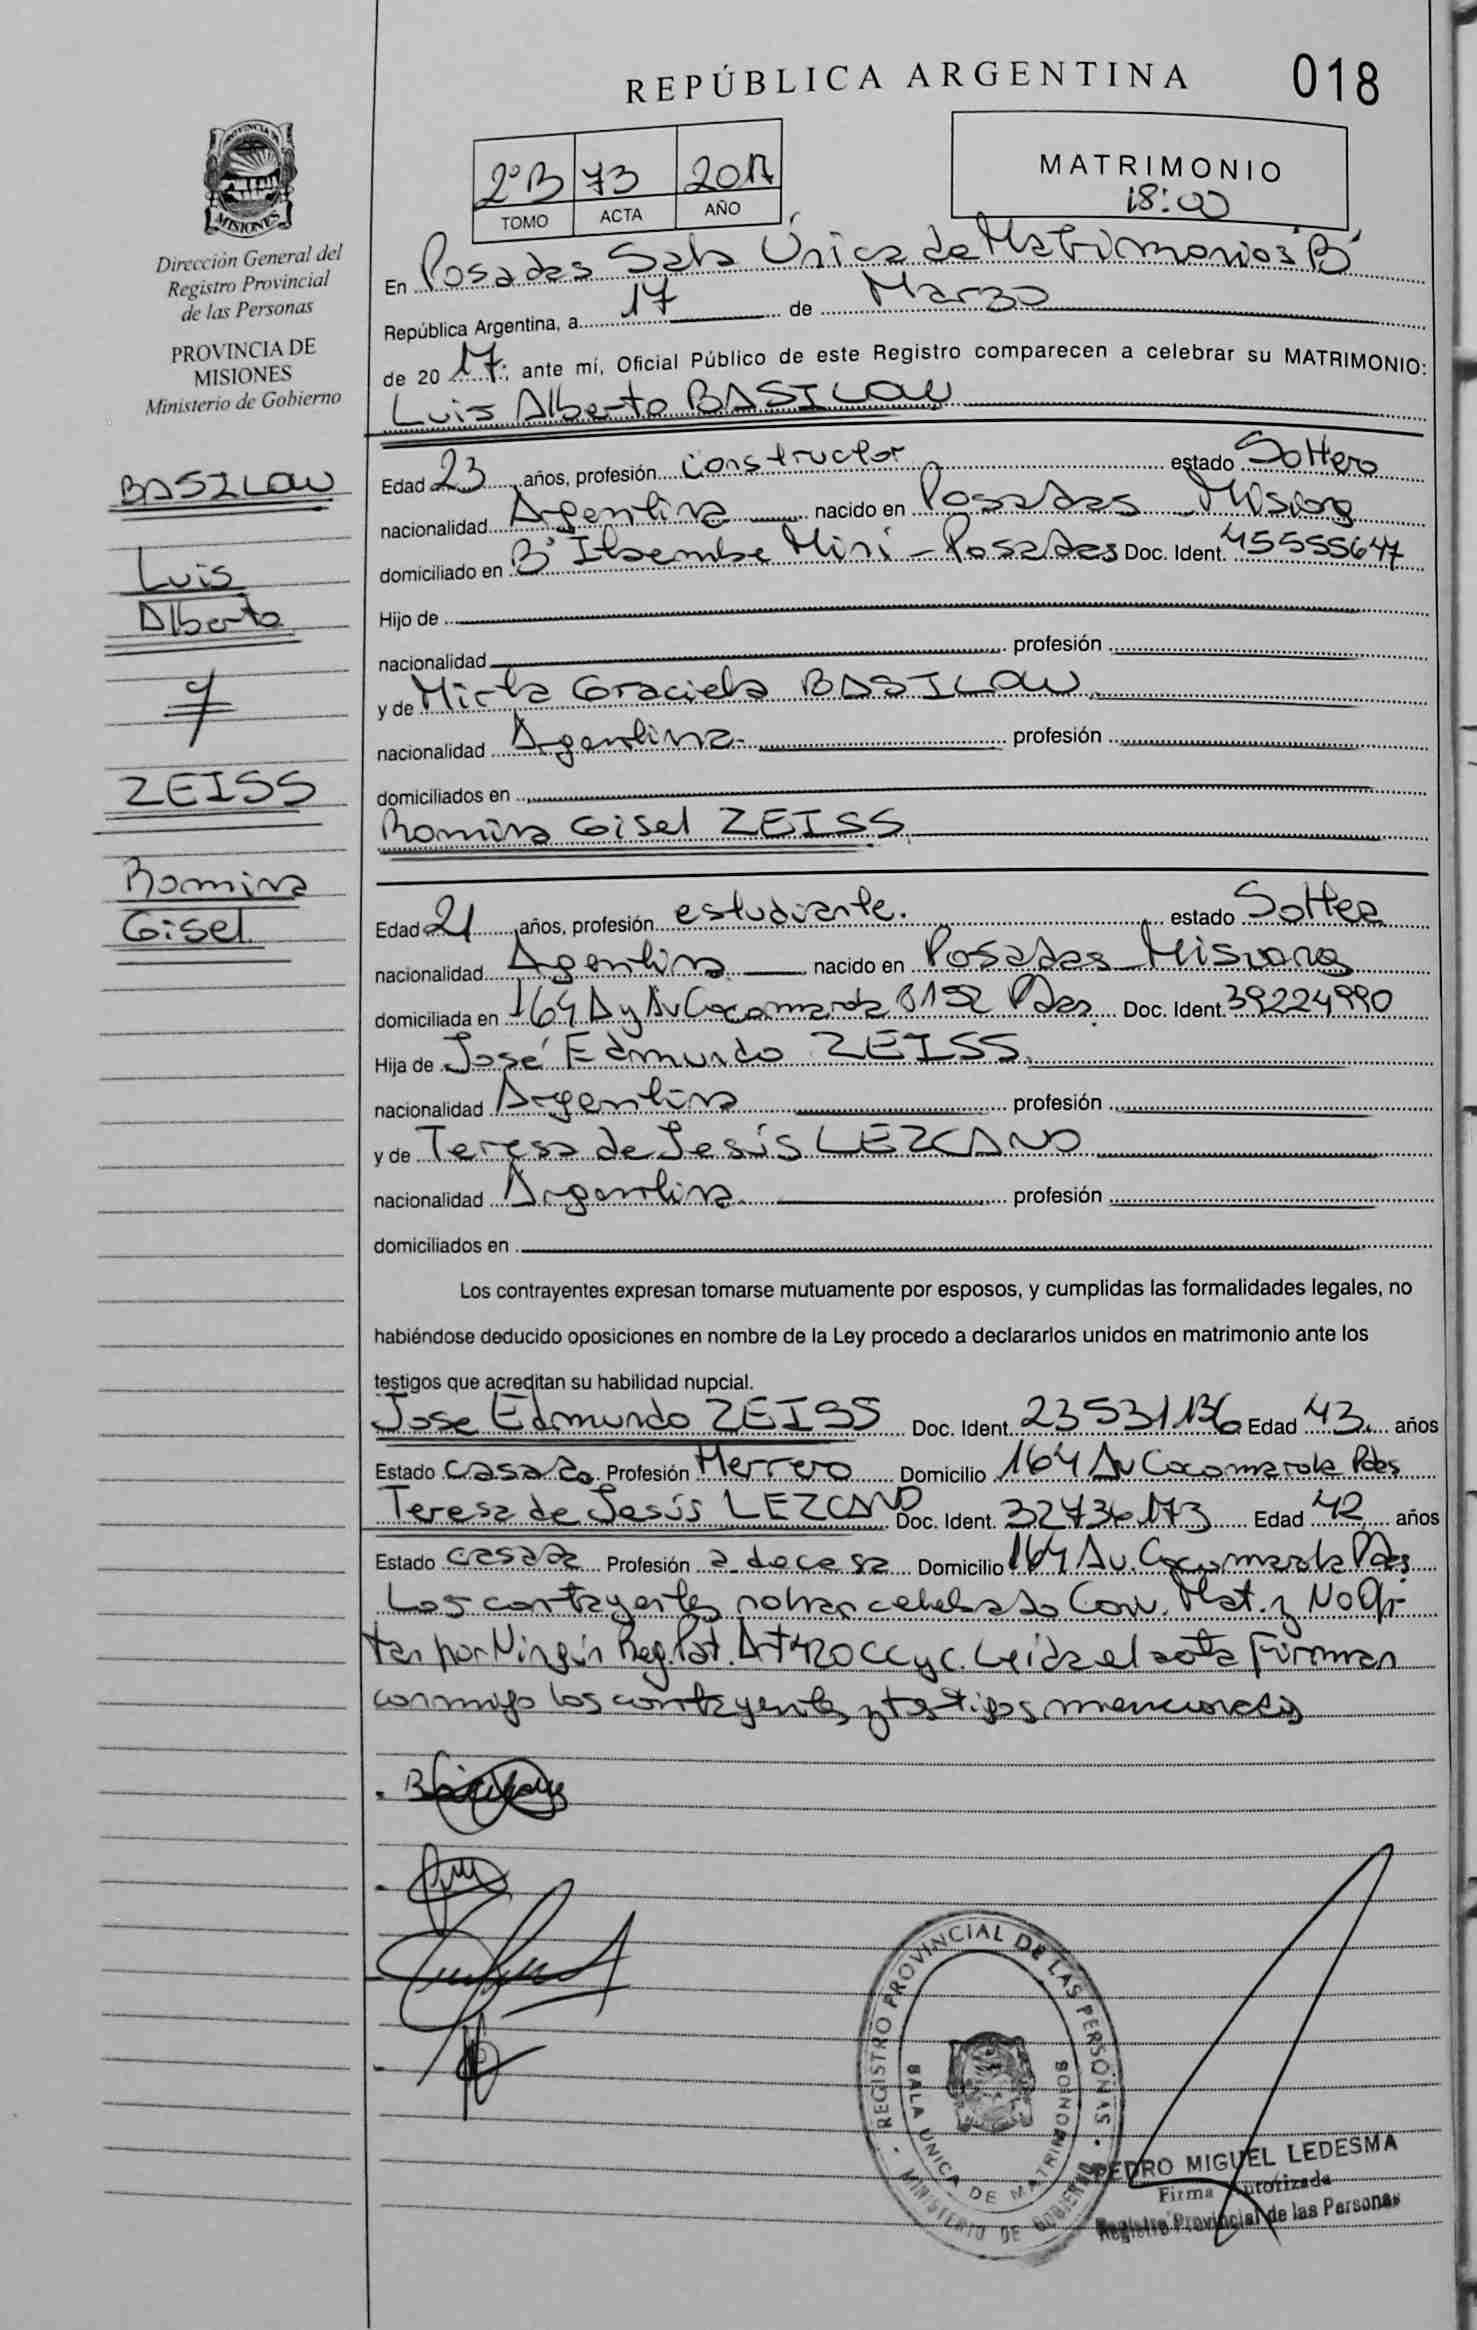 REPÚBLICA ARGENTINA 018
2ºB 73 2017
TOMO ACTA AÑO
MATRIMONIO
18:00
MISIONES
Dirección General del
Registro Provincial
de las Personas
PROVINCIA DE
MISIONES
Ministerio de Gobierno
BASILOW
Luis
Alberto
y
ZEISS
Romina
Gisel
En Posadas Sala Única de Matrimonios "B"
República Argentina, a 17 de Marzo
de 2017; ante mí, Oficial Público de este Registro comparecen a celebrar su MATRIMONIO:
Luis Alberto BASILOW
Edad 23 años, profesión constructor estado Soltero
nacionalidad Argentina nacido en Posadas Misiones
domiciliado en Bº Itaembe Mini - Posadas Doc. Ident. 45555647
Hijo de
nacionalidad profesión
y de Mirta Graciela BASILOW
nacionalidad Argentina profesión
domiciliados en
Romina Gisel ZEISS
Edad 21 años, profesión estudiante. estado Soltera
nacionalidad Argentina nacido en Posadas Misiones
domiciliada en 164 A y Av Cocomarola 8152 Pdas. Doc. Ident. 39224990
Hija de José Edmundo ZEISS
nacionalidad Argentina profesión
y de Teresa de Jesús LEZCANO
nacionalidad Argentina profesión
domiciliados en
Los contrayentes expresan tomarse mutuamente por esposos, y cumplidas las formalidades legales, no
habiéndose deducido oposiciones en nombre de la Ley procedo a declararlos unidos en matrimonio ante los
testigos que acreditan su habilidad nupcial.
Jose Edmundo ZEISS Doc. Ident. 23531136 Edad 43 años
Estado casado Profesión Herrero Domicilio 164 Av Cocomarola Pdas
Teresa de Jesús LEZCANO Doc. Ident. 32736173 Edad 42 años
Estado casada Profesión a. de casa Domicilio 164 Av. Cocomarola Pdas
Los contrayentes no han celebrado Conv. Mat. y No Op-
tan por Ningún Reg. Pat. Art 420 CC y C. Leída el acta Firman
conmigo los contrayentes y testigos mencionados
REGISTRO PROVINCIAL DE LAS PERSONAS
SALA UNICA DE MATRIMONIOS
MINISTERIO DE GOBIERNO
PEDRO MIGUEL LEDESMA
Firma Autorizada
Registro Provincial de las Personas